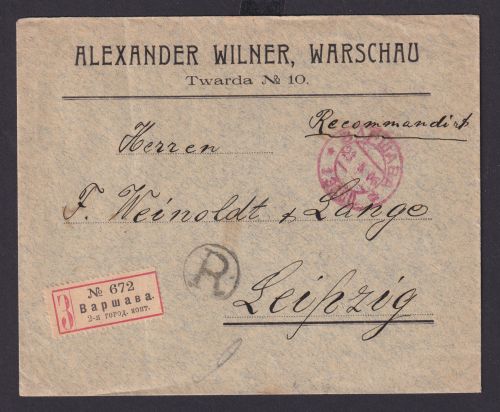 ALEXANDER WILNER, WARSCHAU
Twarda № 10.
Recommandirt
Herren
F. Weinoldt & Lange
Leipzig
R
З
№ 672
Варшава.
2-я город. конт.
ВАРШАВА